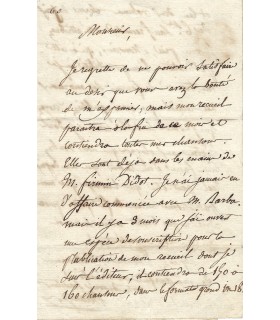 Monsieur,
Je regrette de ne pouvoir satisfaire
au désir que vous avez la bonté
de m'exprimer, mais mon recueil
paraitra à la fin de ce mois et
contiendra toutes mes chansons
Elles sont deja sous les mains de
M. firmin Didot. Je n'ai jamais eu
d'affaire commencée avec M. Barba.
mais il y a 3 mois que j'ai ouvert
une espèce de souscription pour la
publication de mon recueil dont je
suis l'éditeur, et contiendra de 150 à
160 chansons, dans le format grand in 18